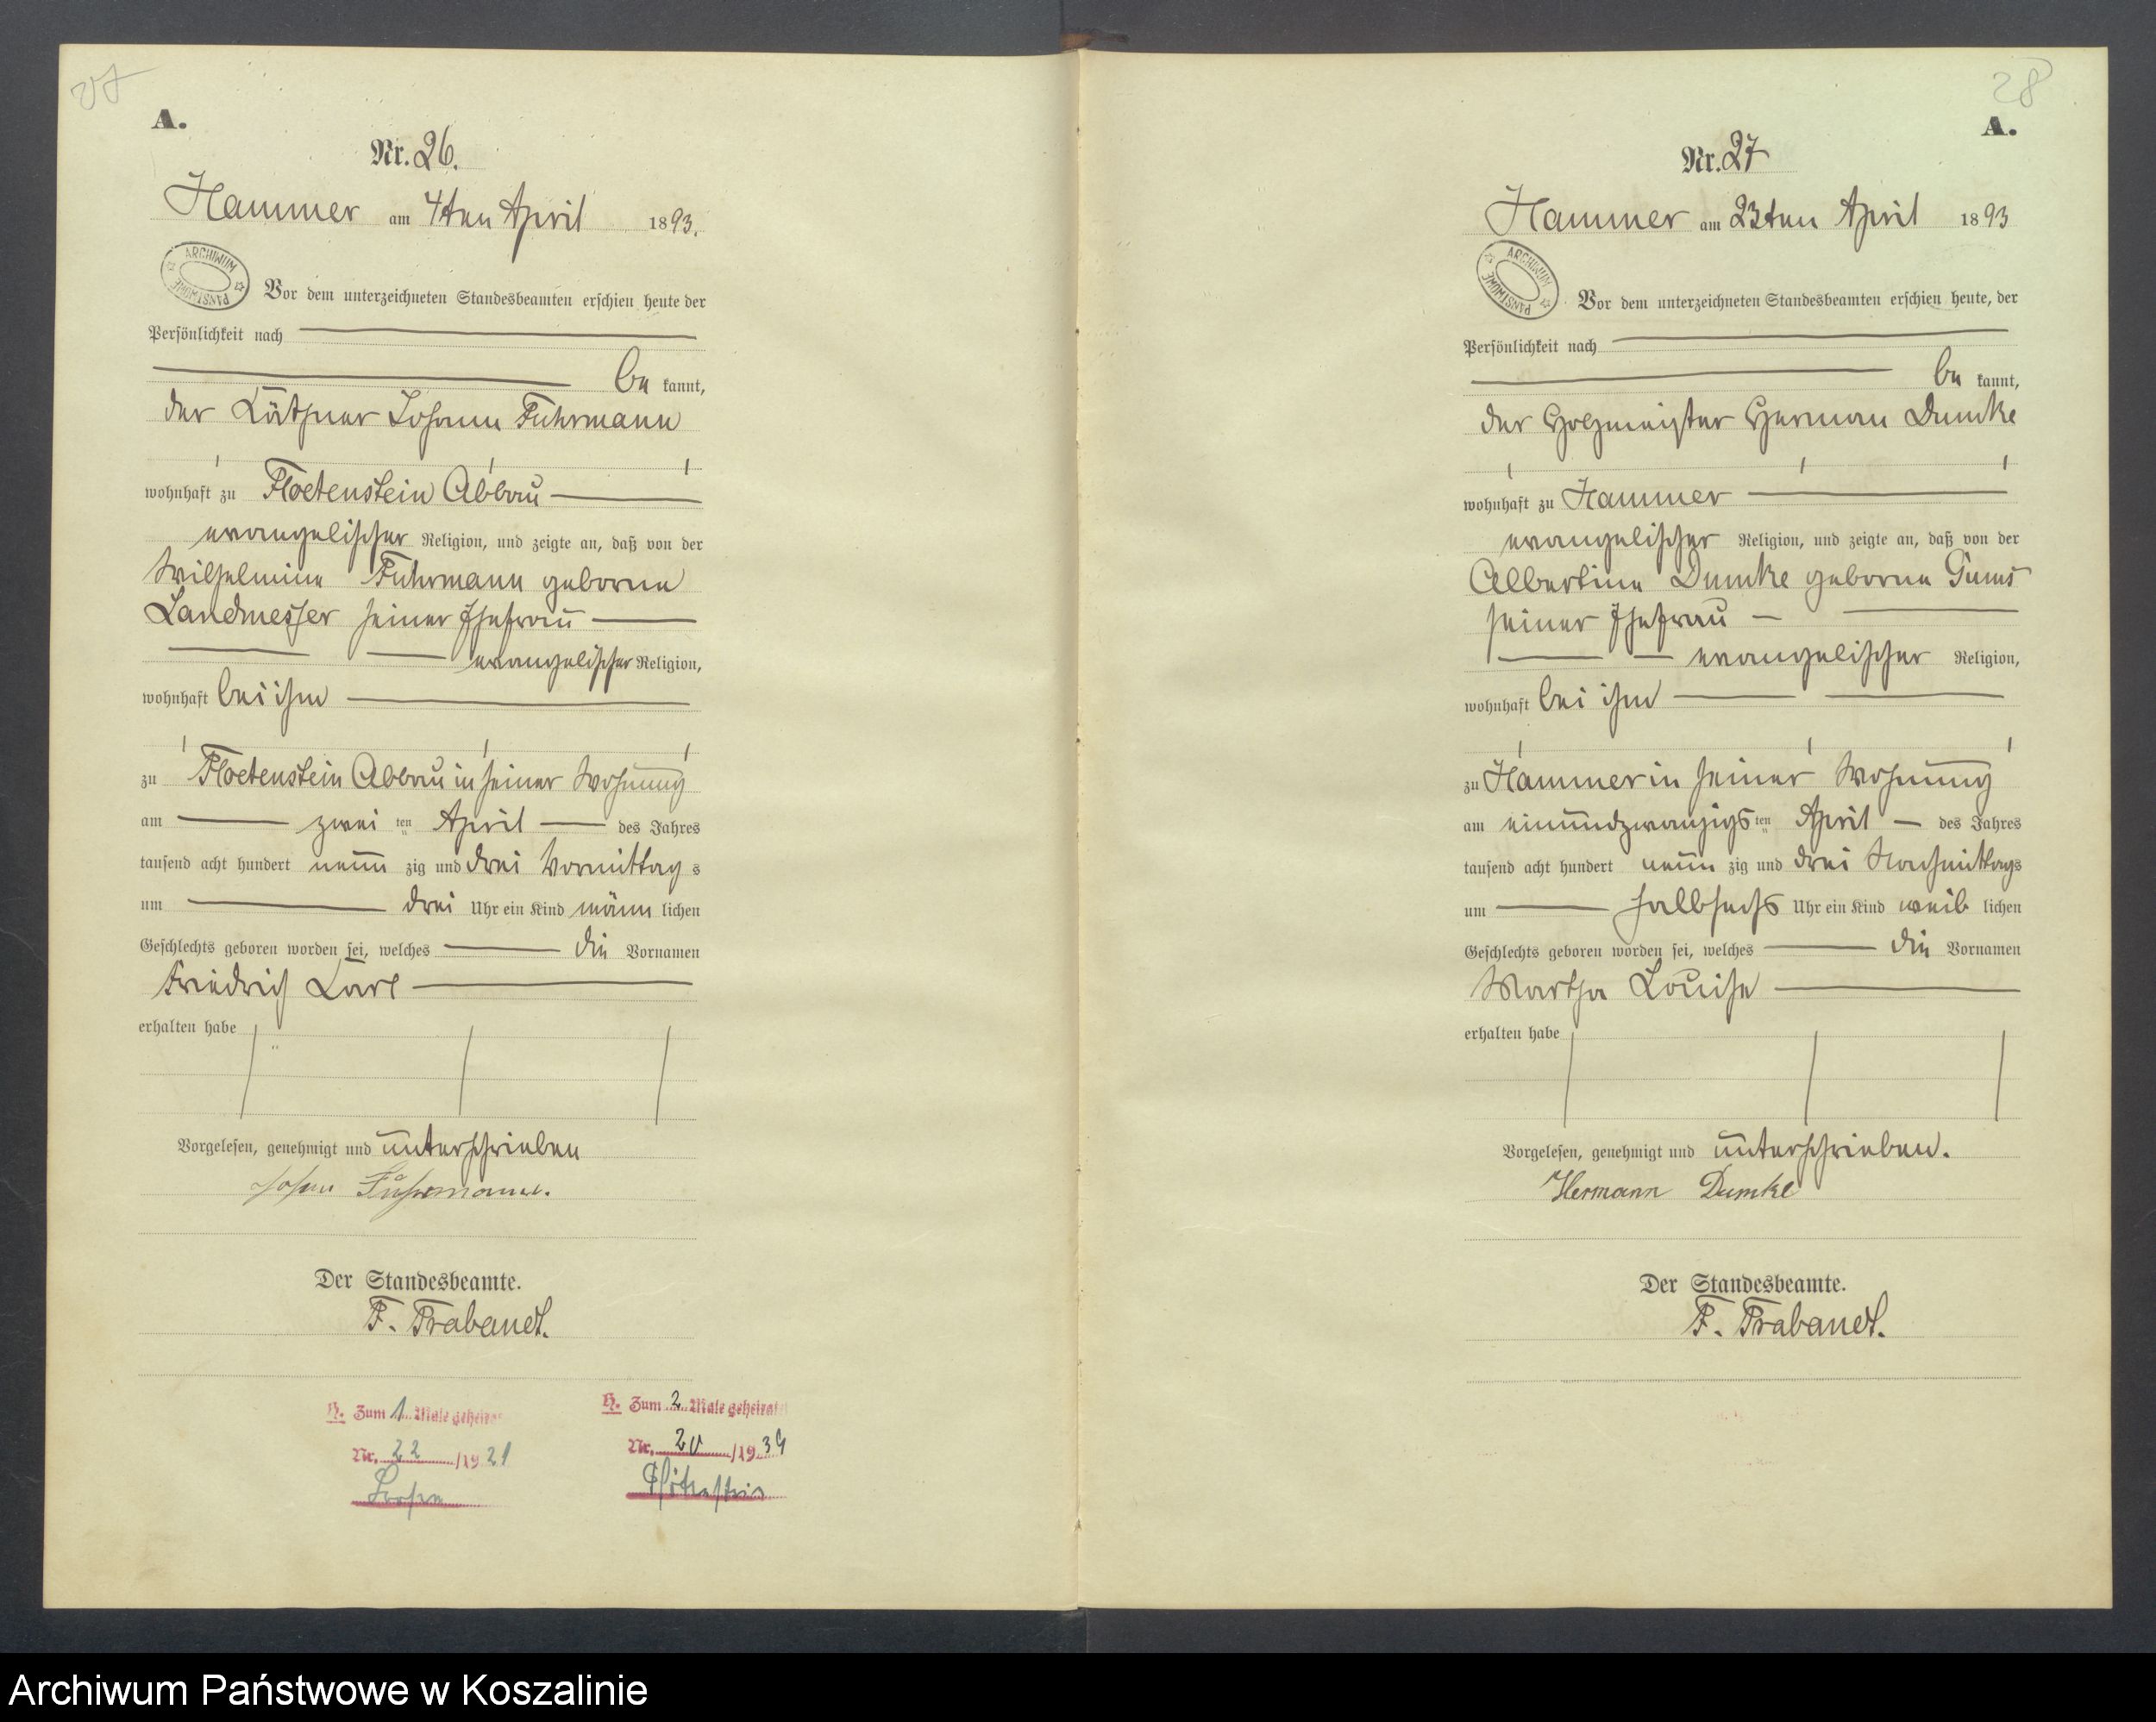 27
A.
Nr. 26.
Hammer am 4ten April 1893.
ARCHIWUM PAŃSTWOWE
Vor dem unterzeichneten Standesbeamten erschien heute der
Persönlichkeit nach
be kannt,
der Käthner Johann Fuhrmann
wohnhaft zu Floetenstein Abbau
evangelischer Religion, und zeigte an, daß von der
Wilhelmine Fuhrmann geborne
Landmesser seiner Ehefrau
evangelischer Religion,
wohnhaft bei ihm
zu Floetenstein Abbau in seiner Wohnung
am zwei ten April des Jahres
tausend acht hundert neun zig und drei Vormittag s
um drei Uhr ein Kind männ lichen
Geschlechts geboren worden sei, welches die Vornamen
Friedrich Karl
erhalten habe
Vorgelesen, genehmigt und unterschrieben
Johann Fuhrmann.
Der Standesbeamte.
F. Trabandt.
H. Zum 1 Male geheirat
Nr. 22 /1921
H. Zum 2 Male geheirat
Nr. 20 /1939
Flötenstein
28
A.
Nr. 27
Hammer am 23ten April 1893
ARCHIWUM PAŃSTWOWE
Vor dem unterzeichneten Standesbeamten erschien heute, der
Persönlichkeit nach
be kannt,
der Holzmeister Herman Dumke
wohnhaft zu Hammer
evangelischer Religion, und zeigte an, daß von der
Albertine Dumke geborne Gums
seiner Ehefrau
evangelischer Religion,
wohnhaft bei ihm
zu Hammer in seiner Wohnung
am einundzwanzigs ten April des Jahres
tausend acht hundert neun zig und drei Nachmittags
um halbsechs Uhr ein Kind weib lichen
Geschlechts geboren worden sei, welches die Vornamen
Martha Louise
erhalten habe
Vorgelesen, genehmigt und unterschrieben.
Hermann Dumke
Der Standesbeamte.
F. Trabandt.
Archiwum Państwowe w Koszalinie